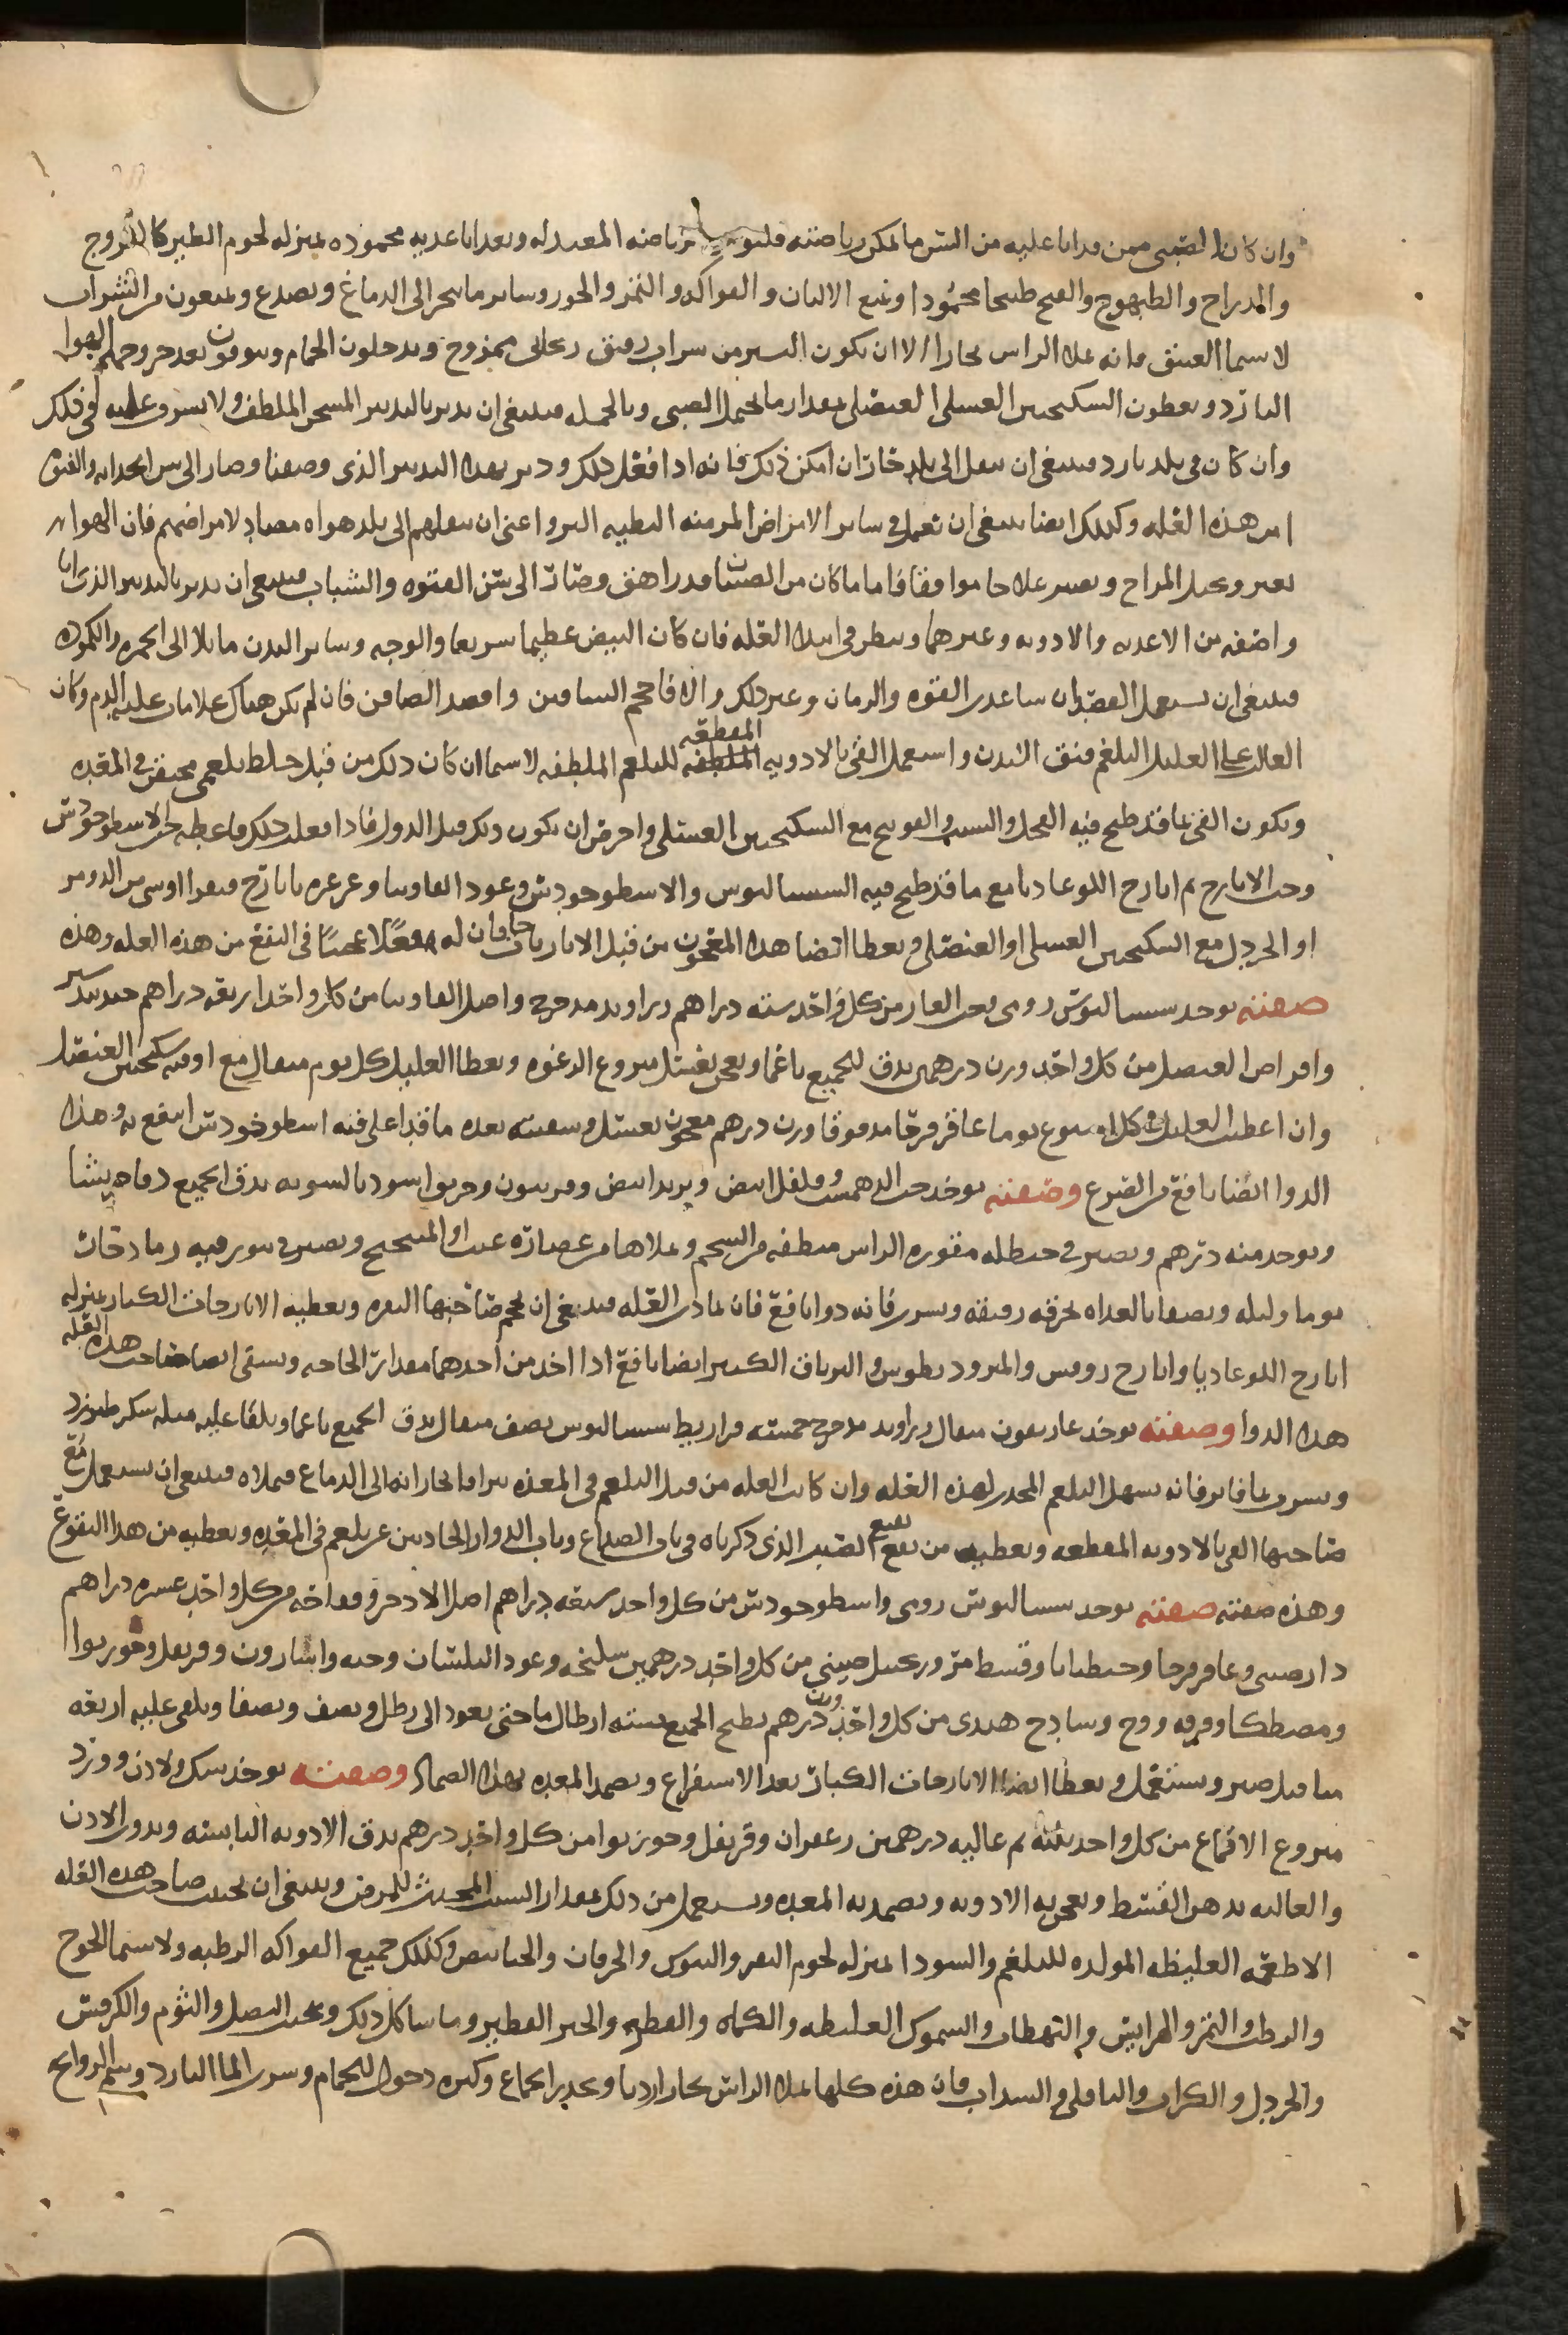 وان كان الصبي ممن قد اتا عليه من السن ما يمكن رياضته فليؤمر برياضة المعتدله ويغدا باغديه محموده بمنزله لحوم الطير كالفروج
والدراج والطيهوج والقبج طبيخا محمودا ويمنع الالبان والفواكه والتمر والجوز وساير ما يبخر الى الدماغ ويصدع ويمنعون من الشراب
لا سيما العتيق فانه يملا الراس بخارا الا ان يكون اليسير من شراب رقيق ريحاني ممزوج ويدخلون الحمام ويتوقون بعد خروجهم الهوا
البارد ويعطون السكنجبين العسلي العنصلي بمقدار ما يحتمل الصبي وبالجمله فينبغي ان يدبر بالتدبير المسخن الملطف ولا يسرف عليه في ذلك
وان كان في بلد بارد فينبغي ان ينقل الى بلد حار ان امكن ذلك فانه اذا فعل ذلك ودبر بهذا التدبير الذي وصفنا وصار الى سن الحداثه والفتوه
امن هذه العله وكذلك ايضا ينبغي ان تعمل في ساير الامراض المزمنه البطيه البرو اعني ان ينقلهم الى بلد هواه مضاد لامراضهم فان الهوا
يغير ويحيل المزاج ويصير علاجا موافقا فاما ما كان من الصبيان قد راهق وصار الى سن الفتوه والشباب فينبغي ان يدبر بالتدبير الذي انا
واصفه من الاغديه والادويه وغيرهما وينظر في ابتدا العله فان كان النبض عظيما سريعا والوجه وساير البدن مايلا الى الحمره والكموده
فينبغي ان يستعمل الفصد ان ساعدت القوه والزمان وغير ذلك والا فاحجم الساقين وافصد الصافن فان لم يكن هناك علامات غلبة الدم وكان
الغالب على العليل البلغم فنق البدن واستعمل القي بالادويه المقطعه للبلغم الملطفه لا سيما ان كان ذلك من قبل خلط بلغمي محتقن في المعده
ويكون القي بما قد طبخ فيه الفجل والشبت والفودنج مع السكنجبين العسلي واحرص ان يكون ذلك قبل الدوا فاذا فعلت ذلك فاعطه حب الاسطوخودس
وحب الايارج ثم ايارج اللوغاديا مع ما قد طبخ فيه السساليوس والاسطوخودس وعود الفاونيا وغرغره بايارج فيقرا
او الخردل مع السكنجبين العسلي او العنصلي ويعطا ايضا هذا المعجون من قبل الايارجات فان له فعلا عجيبا في النفع من هذه العله وهذه
صفته يوخد سساليوس رومي وحب الغار من كل واحد سته دراهم زراوند مدحرج واصل الفاونيا من كل واحد اربعه دراهم جندبيدستر
واقراص العنصل من كل واحد وزن درهمين يدق الجميع ناعما ويعجن بعسل منزوع الرغوه ويعطا العليل كل يوم مثقال مع اوقيه سكنجبين العنصل
وان اعطيت العليل في كل اسبوع يوما عاقرقرحا مدقوقا وزن درهم معجون بعسل وسقيته بعده ما قد اغلي فيه اسطوخودس انتفع به وهذا
الدوا ايضا نافع من الصرع وصفته يوخد حب الدهمست وفلفل ابيض وتربد ابيض وفربيون وخربق اسود بالسويه يدق الجميع دقا جريشا
ويوخد منه درهم ويصير في حنظله مقوره الراس منظفه من الشحم ويملاها من عصاره عنب او الميبختج ويصير في تنور فيه رماد حار
يوما وليله ويصفا بالغداه بخرقه رقيقه ويسقى فانه دوا نافع فان تمادت العله فينبغي ان يحجم صاحبها النقره ويعطيه الايارجات الكبار بمنزله
ايارج اللوغاديا وايارج روفس والمثروديطوس والترياق الكبير ايضا نافع اذا اخد من احدهما مقدار الحاجه ويسقى ايضا صاحب هذه العله
هذا الدوا وصفته يوخد غاريقون مثقال زراوند مدحرج خمسه قراريط سساليوس نصف مثقال يدق الجميع ناعما ويلقا عليه مثله سكر طبرزد
ويسقى بما فاتر فانه يسهل البلغم المحدث لهذه العله وان كانت العله من قبل البلغم في المعده تتراقا بخاراته الى الدماغ فيملاه فينبغي ان يستعمل مع
صاحبها القي بالادويه المقطعه ويعطيه من نقيع الصبر الذي ذكرناه في باب الصداع وباب الدوار الحادثين عن بلغم في المعده ويعطيه من هذا النقوع
وهذه صفته صفته يوخد سساليوس رومي واسطوخودس من كل واحد سبعه دراهم اصل الادخر وفقاحه من كل واحد عشره دراهم
دارصيني وعاقرقرحا وجنطيانا وقسط مر وزنجبيل صيني من كل واحد درهمين سليخه وعود البلسان وحبه واسارون وقرنفل وجوزبوا
ومصطكا وقرفه ووج وسادج هندي من كل واحد وزن درهم يطبخ الجميع بسته ارطال ما حتى يعود الى رطل ونصف ويصفا ويلقى عليه اربعه
مثاقيل صبر ويستعمل ويعطا ايضا الايارجات الكبار بعد الاستفراغ ويضمد المعده بهذا الضماد وصفته يوخد سك ولادن وورد
منزوع الاقماع من كل واحد ثلثه غاليه درهمين زعفران وقرنفل وجوزبوا من كل واحد درهم يدق الادويه اليابسه ويدوب الادن
والغاليه بدهن القسط ويعجن به الادويه ويضمد به المعده ويستعمل من ذلك بمقدار السبب المحدث للمرض وينبغي ان يجنب صاحب هذه العله
الاطعمه الغليظه المولده للبلغم والسودا بمنزله لحوم البقر والتيوس والخرفان والخنانيص وكذلك جميع الفواكه الرطبه ولا سيما الخوخ
والرطب والتمر والهرايس والبهطات والسموك الغليظه والكماه والفطير والخبز الفطير وما شاكل ذلك ويجنب البصل والثوم والكرفس
والخردل والكراث والباقلى والسداب فان هذه كلها تملا الراس بخارا رديا ويحدر الجماع وكثره دخول الحمام وشرب الما البارد وشم الروايح